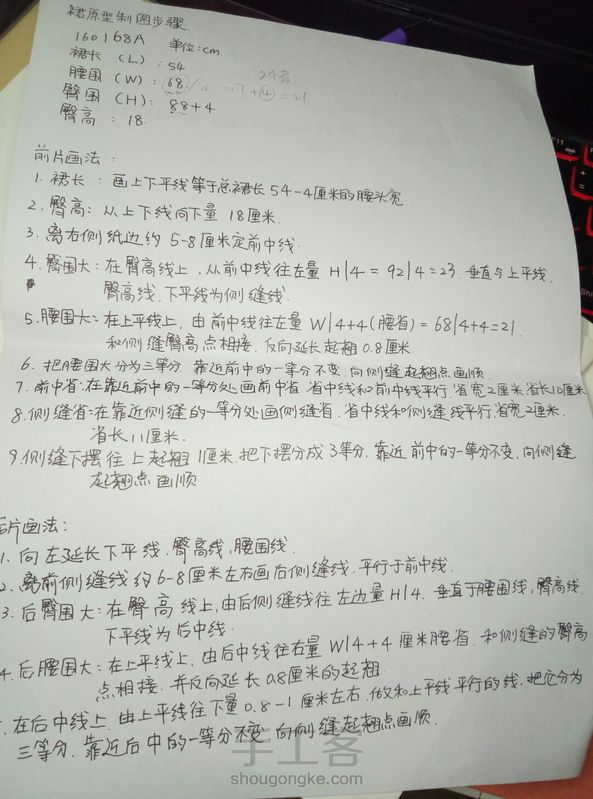 裙原型制图步骤.
160168A 单位:cm.
裙长(L):54
腰围(W):68 /4 17+4=21
臀围(H):88+4
臀高:18
前片画法:
1.裙长:画上下平线等于总裙长54-4厘米的腰头宽
2.臀高:从上下线向下量18厘米.
3.离右侧纸边约5-8厘米定前中线.
4.臀围大:在臀高线上.从前中线往左量H/4=92/4=23.垂直与上平线.
臀高线.下平线为侧缝线.
5.腰围大:在上平线上.由前中线往左量W/4+4(腰省)=68/4+4=21.
和侧缝臀高点相接.反向延长起翘0.8厘米.
6.把腰围大分为三等分.靠近前中的一等分不变.向侧缝起翘点画顺.
7.前中省:在靠近前中的一等分处画前中省.省中线和前中线平行.省宽2厘米.省长10厘米
8.侧缝省:在靠近侧缝的一等分处画侧缝省.省中线和侧缝线平行.省宽2厘米.
省长11厘米.
9.侧缝下摆往上起翘1厘米.把下摆分成3等分.靠近前中的一等分不变.向侧缝
起翘点画顺
片画法:
1.向左延长下平线.臀高线.腰围线.
2.离前侧缝线约6-8厘米左右画后侧缝线.平行于前中线.
3.后臀围大:在臀高线上,由后侧缝线往左边量H/4.垂直于腰围线,臀高线
下平线为后中线.
4.后腰围大:在上平线上,由后中线往右量W/4+4厘米腰省.和侧缝的臀高
点相接.并反向延长0.8厘米的起翘.
在后中线上.由上平线往下量0.8-1厘米左右.做和上平线平行的线.把它分为
三等分.靠近后中的一等分不变.向侧缝起翘点画顺.
手工客
shougongke.com